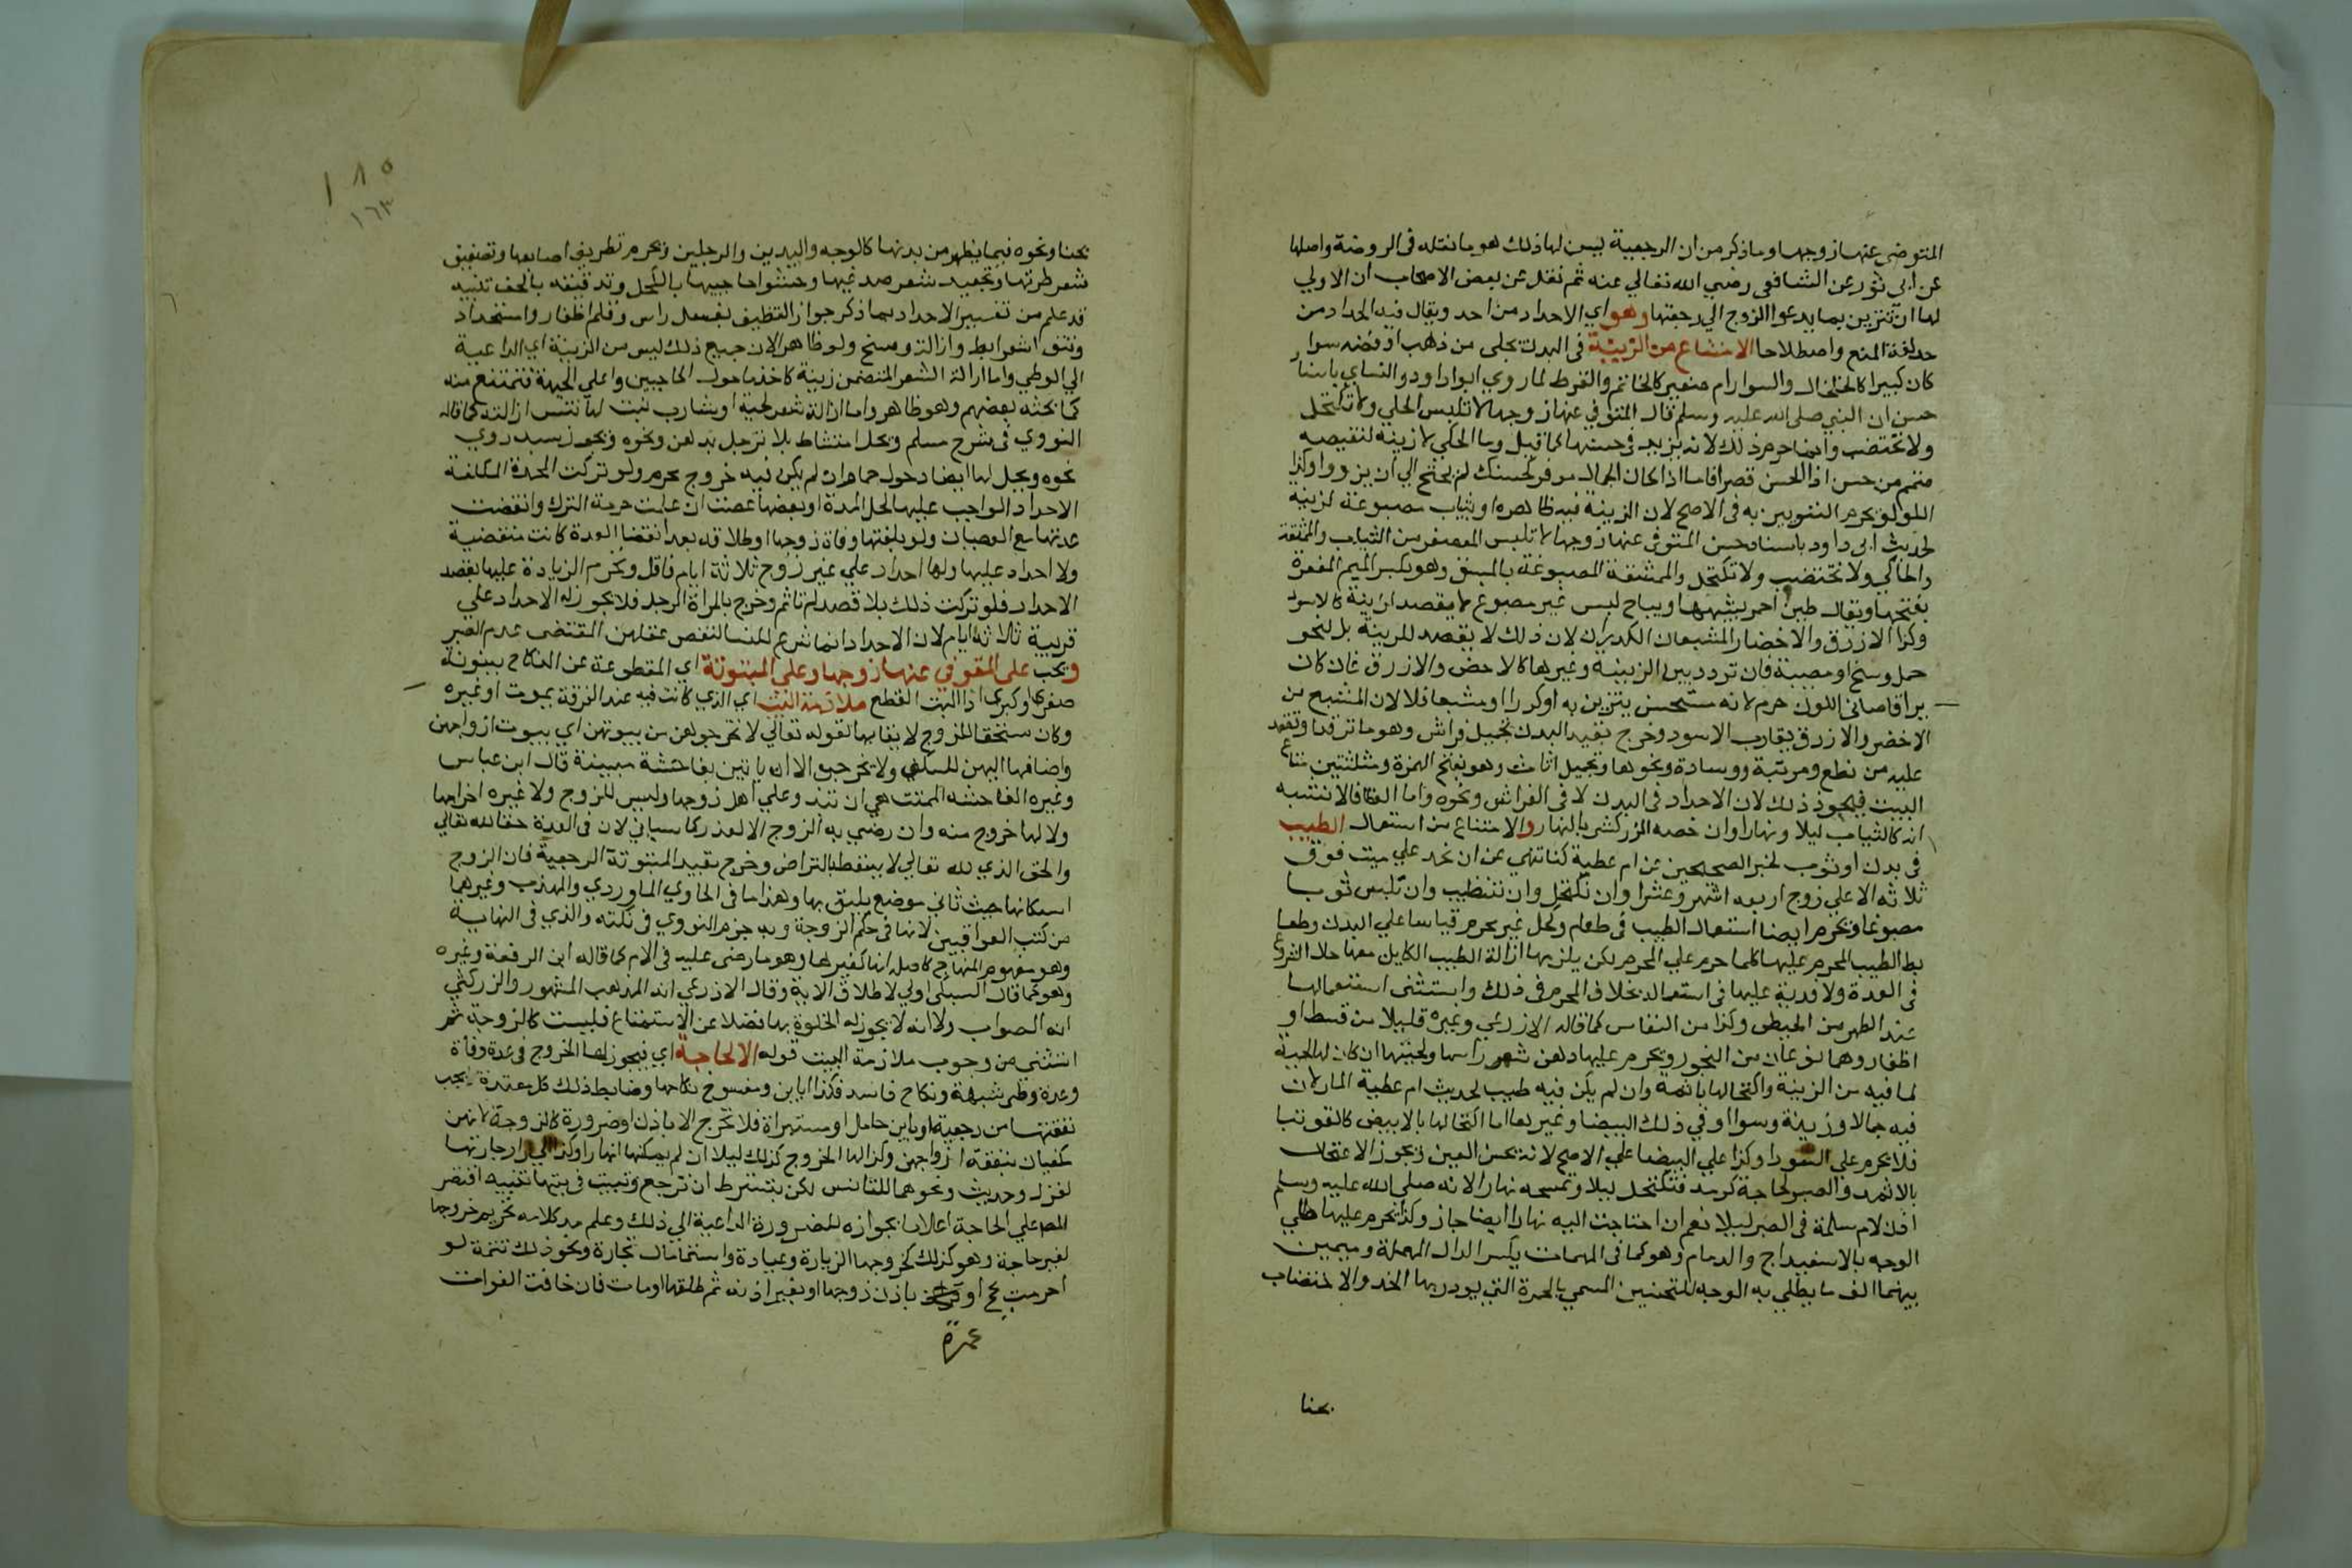 المتوفى عنها زوجها وما ذكر من ان الرجعية ليس لها ذلك هو ما نقله فى الروضة واصلها
عن ابى ثور عن الشافعى رضي الله تعالي عنه ثم نقل عن بعض الاصحاب ان الاولي
لها ان تتزين بما يدعوا الزوج الي رجعتها وهو اي الاحداد من احد ويقال فيه الحداد من
حد لغة المنع واصطلاحا الامتناع من الزينة فى البدن بحلي من ذهب او فضة سوا
كان كبيرا كالخلخال والسوار ام صغيرا كالخاتم والقرط لما روي ابوا داود والنساي باسناد
حسن ان النبي صلى الله عليه وسلم قال المتوفي عنها زوجها لا تلبس الحلي ولا تكتحل
ولا تختضب وانما حرم ذلك لانه يزيد فى حسنها كما قيل وما الحلي الا زينة لنقيصة
متمم من حسن اذا الحسن قصرا فاما اذا كان الجمال موفرا كحسنك لم يحتج الي ان يزورا وكذا
اللولو يحرم التزيين به فى الاصح لان الزينة فيه ظاهرة او بثياب مصبوغة لزينة
لحديث ابى داود باسناد حسن المتوفى عنها زوجها لا تلبس المعصفر من الثياب والممشقة
والحلي ولا تختضب ولا تكتحل والممشقة المصبوغة بالمشق وهو بكسر الميم المغرة
بفتحها ويقال طين احمر يشبهها ويباح لبس غير مصبوغ لا يقصد لزينة كالاسود
وكذا الازرق والاخضر المشبعان الكدران لان ذلك لا يقصد للزينة بل لنحو
حمل وسخ او مصيبة فان تردد بين الزينة وغيرها كالاخضر والازرق فان كان
براقا صافى اللون حرم لانه مستحسن يتزين به او كدرا او مشبعا فلا لان المشبع من
الاخضر والازرق يقارب الاسود وخرج بقيد البدن تجميل فراش وهو ما ترقد او تقعد
عليه من نطع ومرتبة ووسادة ونحوها وتجميل اثاث وهو بفتح الهمزة ومثلثتين متاع
البيت فيجوز ذلك لان الاحداد فى البدن لا فى الفراش ونحوه واما الغطا فالاشبه
انه كالثياب ليلا ونهارا وان خصه الزركشي بالنهار والامتناع من استعمال الطيب
فى بدن او ثوب لخبر الصحيحين عن ام عطية كنا ننهي عن ان نحد علي ميت فوق
ثلاثة الا علي زوج اربعة اشهر وعشرا وان نكتحل وان نتطيب وان نلبس ثوبا
مصبوغا ويحرم ايضا استعمال الطيب فى طعام وكحل غير محرم قياسا علي البدن وضا
بط الطيب المحرم عليها كلما حرم علي المحرم لكن يلزمها ازالة الطيب الكاين معها حال الشروع
فى العدة ولا فدية عليها فى استعماله بخلاف المحرم فى ذلك واستثنى استعمالها
عند الطهر من الحيض وكذا من النفاس كما قاله الاذرعي وغيره قليلا من قسط او
اظفار وهما نوعان من البخور ويحرم عليها دهن شعر راسها ولحيتها ان كان لها لحية
لما فيه من الزينة واكتحالها باثمد وان لم يكن فيه طيب لحديث ام عطية المار لان
فيه جمالا وزينة وسوا فى ذلك البيضا وغيرها اما اكتحالها بالابيض كالتوتيا
فلا يحرم علي السودا وكذا علي البيضا علي الاصح لانه يحسن العين ويجوز الاكتحال
بالاثمد والصبر لحاجة كرمد فتكتحل ليلا وتمسحه نهارا لانه صلي الله عليه وسلم
اذن لام سلمة فى الصبر ليلا نعم ان احتاجت اليه نهارا ايضا جاز وكذا يحرم عليها طلي
الوجه بالاسفيداج والدمام وهو كما فى المهمات بكسر الدال المهملة وميمين
بينهما الف ما يطلي به الوجه للتحسين المسمي بالحمرة التي يورد بها الخد والاختضاب
بحنا
١٨٥
١٦٣
بحنا ونحوه فيما يظهر من بدنها كالوجه واليدين والرجلين ويحرم تطريف اصابعها وتصفيف
شعر طرتها وتجعيد شعر صدغيها وحشو حاجبيها بالكحل وتدقيقه بالحف تنبيه
قد علم من تفسير الاحداد بما ذكر جواز التنظيف بغسل راس وقلم اظفار واستحداد
ونتف شعر ابط وازالة وسخ ولو ظاهرا لان جميع ذلك ليس من الزينة اي الداعية
الي الوطي واما ازالة الشعر المتضمن زينة كاخذ ما حول الحاجبين واعلي الجبهة فتمتنع منه
كما بحثه بعضهم وهو ظاهر واما ازالة شعر لحية او شارب نبت لها فتسن ازالته كما قاله
النووي فى شرح مسلم ويحل امتشاط بلا ترجل بدهن ونحوه ويجوز بسدر وي
نحوه ويحل لها ايضا دخول حمام ان لم يكن فيه خروج محرم ولو تركت المحدة المكلفة
الاحداد الواجب عليها كل المدة او بعضها عصت ان علمت حرمة الترك وانقضت
عدتها مع العصيان ولو بلغتها وفاة زوجها او طلاقه بعد انقضا العدة كانت منقضية
ولا احداد عليها ولها احداد علي غير زوج ثلاثة ايام فاقل ويحرم الزيادة عليها بقصد
الاحداد فلو تركت ذلك بلا قصد لم تاثم وخرج بالمراة الرجل فلا يجوز له الاحداد علي
قريبة ثلاثة ايام لان الاحداد انما شرع للنسا لنقص عقلهن المقتضى عدم الصبر
ويجب على المتوفي عنها زوجها وعلي المبتوتة اي المقطوعة عن النكاح ببينونة
صغرى او كبرى اذا البت القطع ملازمة البيت اي الذي كانت فيه عند الفرقة بموت او غيره
وكان مستحقا للزوج لايقا بها لقوله تعالي لا تخرجوهن من بيوتهن اي بيوت ازواجهن
واضافها اليهن للسكني ولا يخرجن الا ان ياتين بفاحشة مبينة قال ابن عباس
وغيره الفاحشة المبينة هي ان تبذ وعلي اهل زوجها وليس للزوج ولا غيره اخراجها
ولا لها خروج منه وان رضي به الزوج الا لعذر كما سياتي لان فى العدة حقا لله تعالي
والحق الذي لله تعالي لا يسقط بالتراض وخرج بقيد المبتوتة الرجعية فان الزوج
اسكانها حيث شا في موضع يليق بها وهذا ما فى الحاوي الماوردي والمهذب وغيرهما
من كتب العراقيين لانها فى حكم الزوجة وبه جزم النووي فى نكته والذي فى النهاية
وهو مفهوم المنهاج كاصله انها كغيرها وهو ما رضى عليه فى الام كما قاله ابن الرفعة وغيره
وهو كما قال السبكي اولي لاطلاق الاية وقال الاذرعي انه المذهب المشهور والزركشي
انه الصواب ولانه لا يجوز له الخلوة بها فضلا عن الاستمتاع فليست كالزوجة ثم
استثنى من وجوب ملازمة البيت قوله الا لحاجة اي فيجوز لها الخروج فى عدة وفاة
وعدة وطى شبهة ونكاح فاسد وكذا باين ومفسوخ نكاحها وضابط ذلك كل معتدة لا يجب
نفقتها من رجعية او باين حامل او مستبراة فلا تخرج الا باذن او ضرورة كالزوجة لانهن
مكفيات بنفقة ازواجهن وكذا لها الخروج كذلك ليلا ان لم يمكنها نهارا وكذا الي دار جارتها
لغزل وحديث ونحوهما للتانس لكن بشرط ان ترجع وتبيت فى بيتها تنبيه اقتصر
المص علي الحاجة اعلاما بجوازه للضرورة الداعية الي ذلك وعلم من كلامه تحريم خروجها
لغير حاجة وهو كذلك كخروجها لزيارة وعيادة واستنما مال تجارة ونحو ذلك تتمة لو
احرمت بحج او باذن زوجها او بغير اذنه ثم طلقها او مات فان خافت الفوات
عمرة